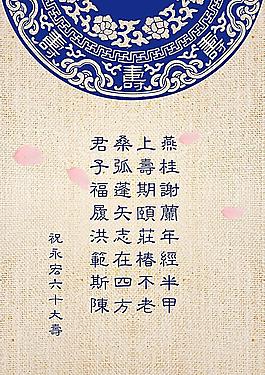 壽
壽
壽
燕桂謝蘭年經半甲
上壽期頤莊椿不老
桑弧蓬矢志在四方
君子福履洪範斯陳
祝永宏六十大壽